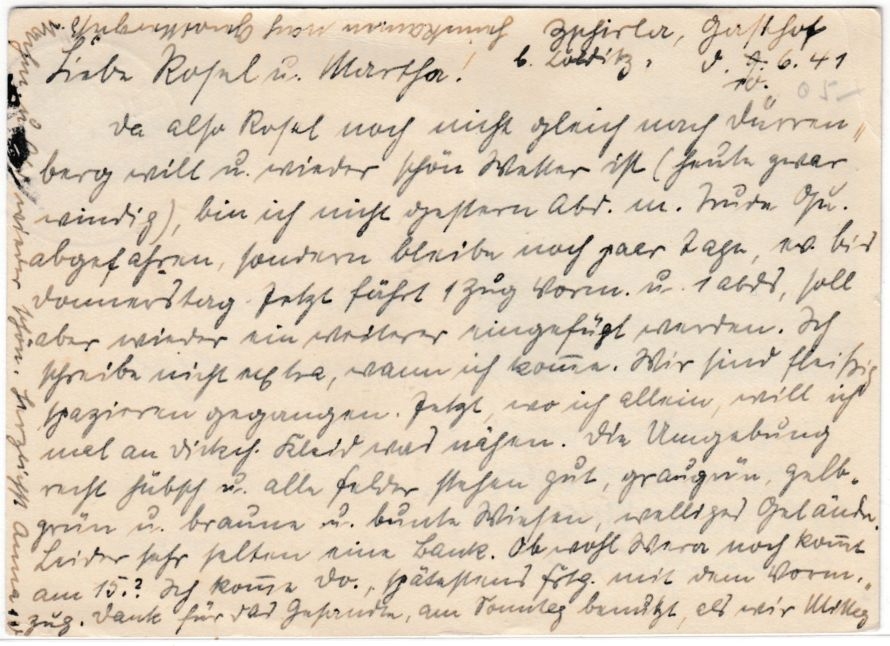 Zschirla, Gasthof
b. Colditz, d. 10. 6. 41
Liebe Rosel u. Martha!
Da also Rosel noch nicht gleich nach Dürren„
berg will u. wieder schön Wetter ist (heute zwar
windig), bin ich nicht gestern Abd. m. Trude Gu.
abgefahren, sondern bleibe noch paar Tage, ev. bis
Donnerstag. Jetzt fährt 1 Zug Vorm. u. 1 abds, soll
aber wieder ein weiterer eingefügt werden. Ich
schreibe nicht extra, wann ich kom̄e. Wir sind fleißig
spazieren gegangen. Jetzt, wo ich allein, will ich
mal an Kleid was nähen. Die Umgebung
recht hübsch u. alle Felder stehen gut, graugrün, gelb-
grün u. braune u. bunte Wiesen, welliges Gelände.
Leider sehr selten eine Bank. Ob wohl Wera noch kom̄t
am 15.? Ich kom̄e Do., spätestens Frtg. mit dem Vorm.„
zug. Dank für das Gesandte, am Sonntag benützt, als wir Mittag
heimkamen von
wieder schön. Herzlichst Anna